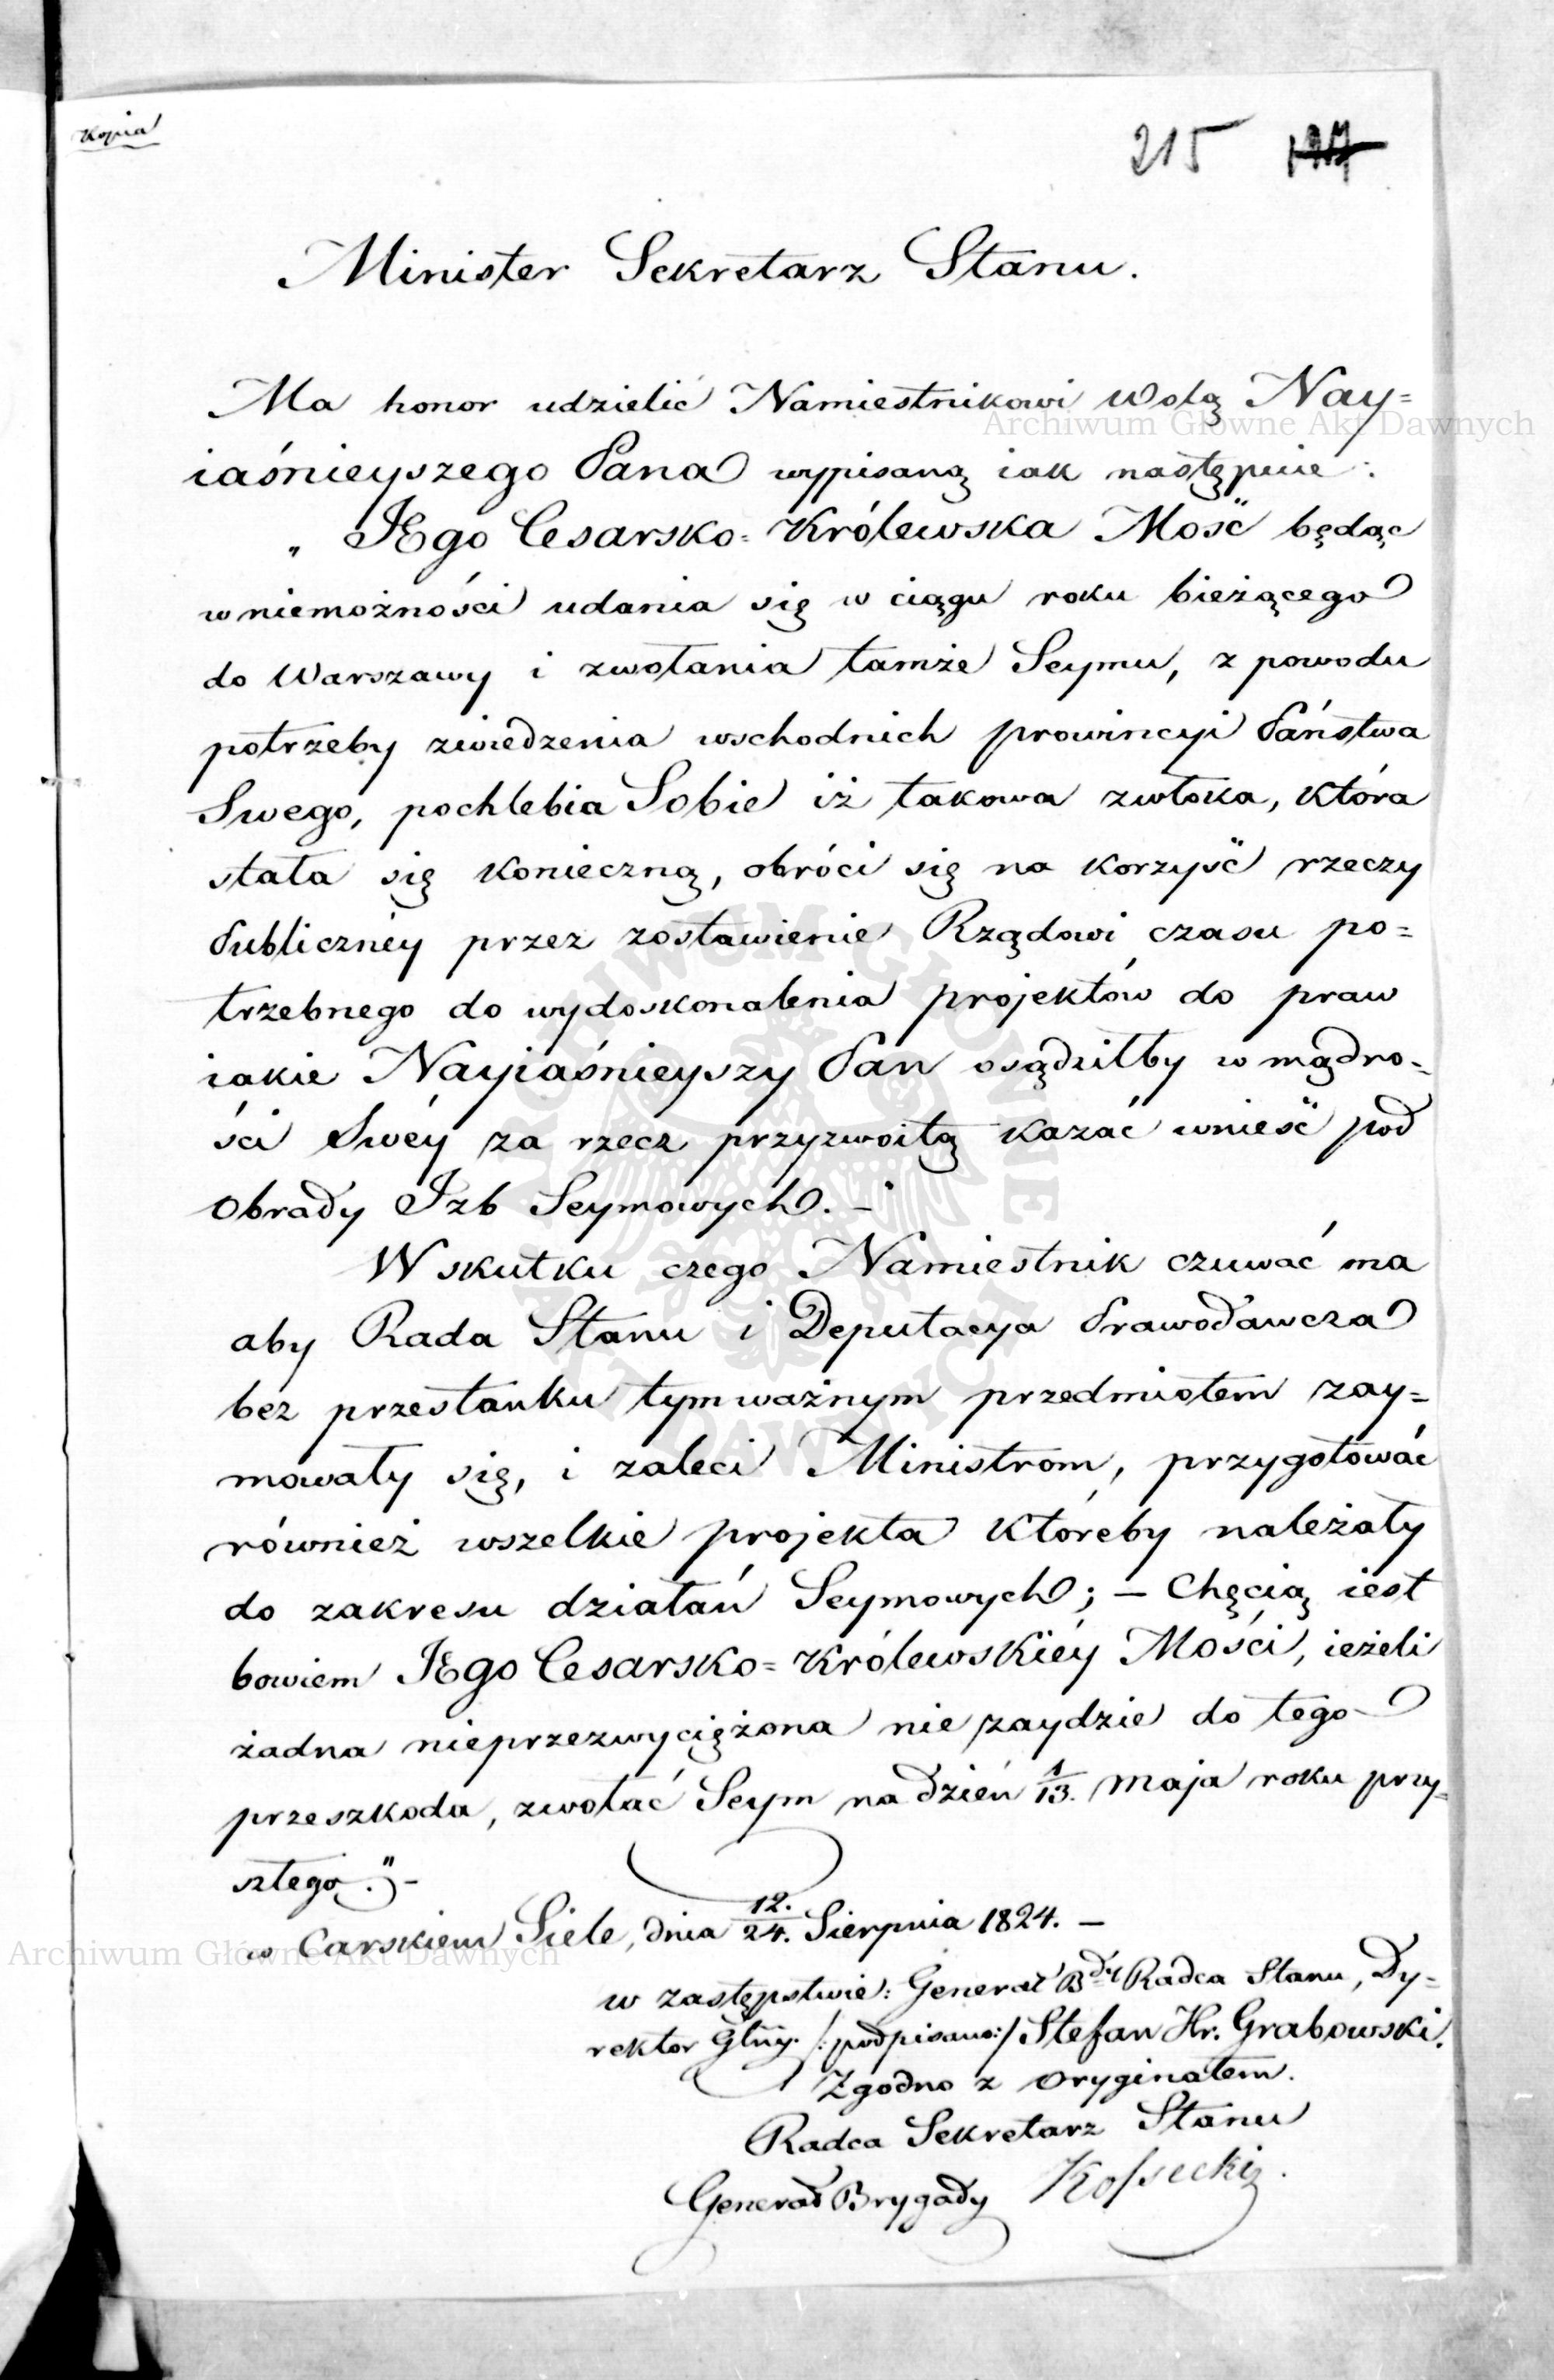 Kopia
215
Minister Sekretarz Stanu.
Ma honor udzielić Namiestnikowi Wolą Nay=
iaśnieyszego Pana wypisaną iak następuie:
„ JEgo Cesarsko=Królewska Mość będąc
w niemożności udania się w ciągu roku bieżącego
do Warszawy i zwołania tamże Seymu, z powodu
potrzeby zwiedzenia wschodnich prowincyi Państwa
Swego, pochlebia Sobie iż takowa zwłoka, która
stała się konieczną, obróci się na korzyść rzeczy
Publicznéy przez zostawienie Rządowi czasu po=
trzebnego do wydoskonalenia projektów do praw
iakie Nayiaśnieyszy Pan osądziłby w mądro=
ści Swéy za rzecz przyzwoitą kazać wnieść pod
Obrady Izb Seymowych. –
W skutku czego Namiestnik czuwać ma
aby Rada Stanu i Deputacya Prawodawcza
bez przestanku tym ważnym przedmiotem zay=
mowały się, i zaleci Ministrom, przygotować
również wszelkie projekta któreby należały
do zakresu działań Seymowych; – Chęcią iest
bowiem JEgo Cesarsko=Królewskiéy Mości, ieżeli
żadna nieprzezwyciężona nie zaydzie do tego
przeszkoda, zwołać Seym na dzień 1/13. Maja roku przy=
szłego." –
w Carskiem Siele, dnia 12./24. Sierpnia 1824. –
w zastępstwie: Generał Bdy Radca Stanu, Dy=
rektor Głny. /:podpisano:/ Stefan Hr. Grabowski.
Zgodno z Oryginałem.
Radca Sekretarz Stanu
Generał Brygady Kossecki.
Archiwum Główne Akt Dawnych
Archiwum Główne Akt Dawnych
ARCHIWUM GŁÓWNE AKT DAWNYCH